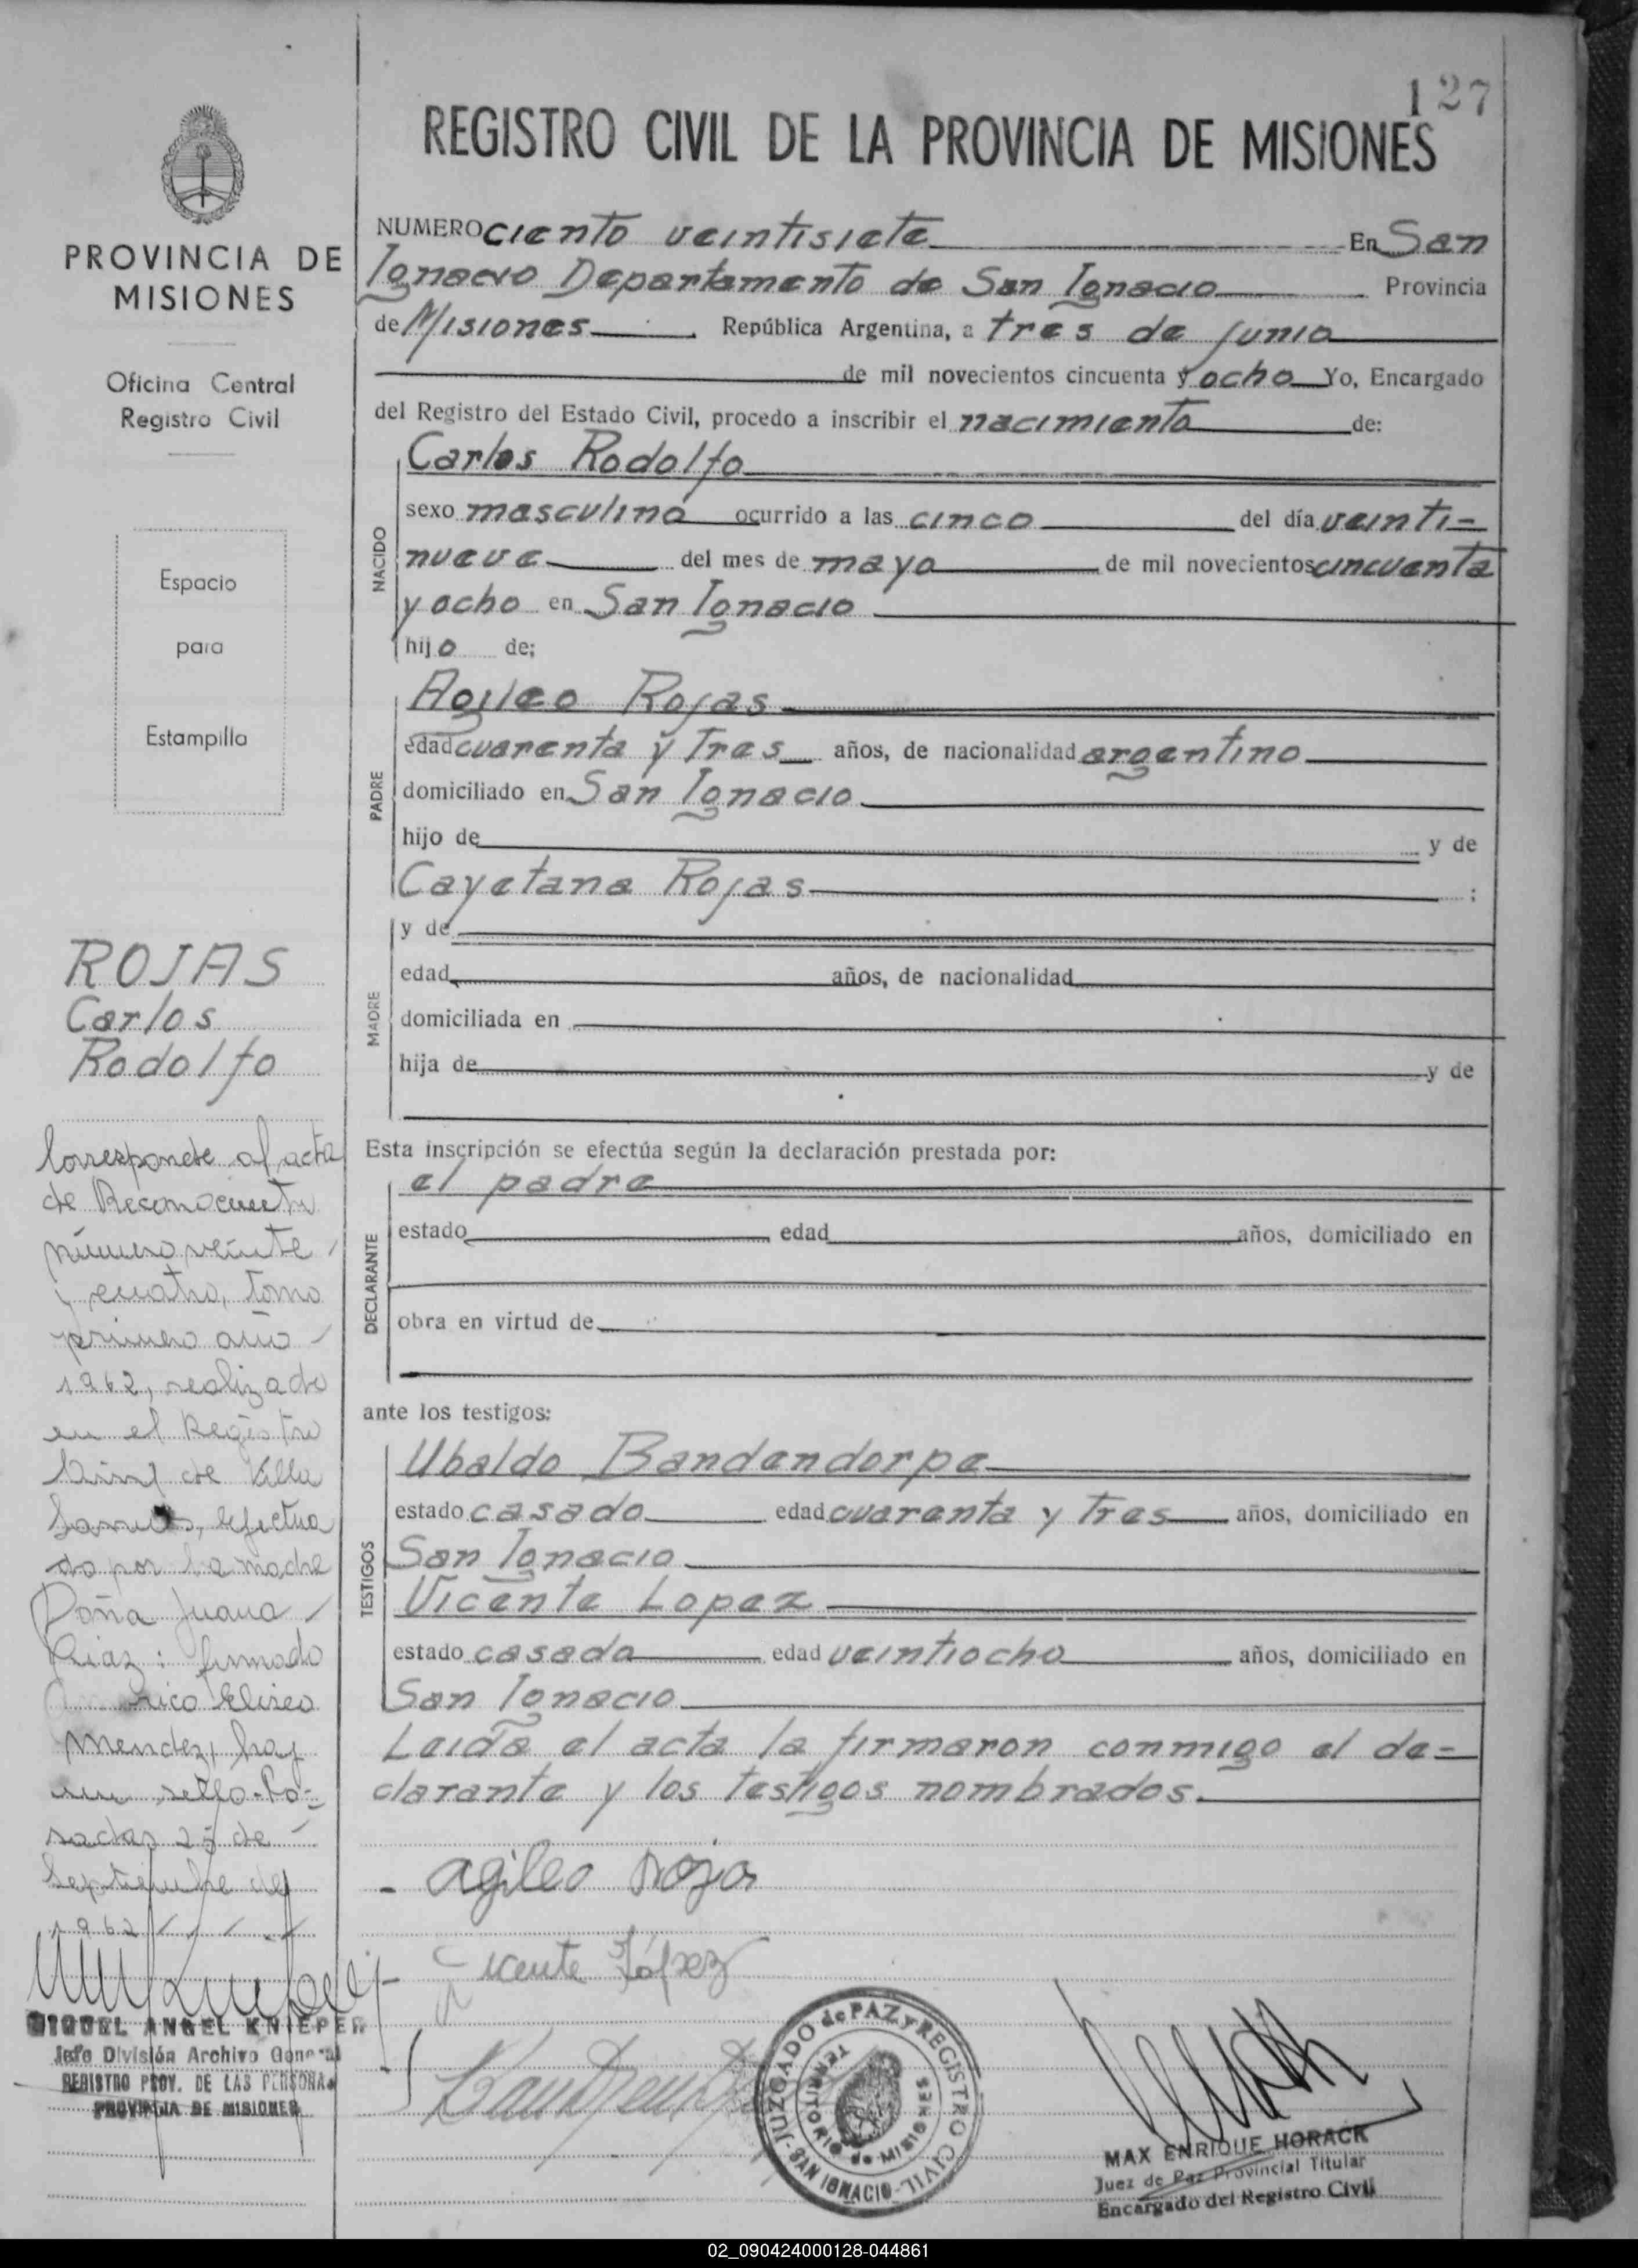 127
REGISTRO CIVIL DE LA PROVINCIA DE MISIONES
PROVINCIA DE
MISIONES
Oficina Central
Registro Civil
Espacio
para
Estampilla
NUMERO ciento veintisiete En San
Ignacio Departamento de San Ignacio Provincia
de Misiones República Argentina, a tres de junio
de mil novecientos cincuenta y ocho Yo, Encargado
del Registro del Estado Civil, procedo a inscribir el nacimiento de:
NACIDO
Carlos Rodolfo
sexo masculino ocurrido a las cinco del día veinti-
nueve del mes de mayo de mil novecientos cincuenta
y ocho en San Ignacio
hijo de;
PADRE
Agileo Rojas
edad cuarenta y Tres años, de nacionalidad argentino
domiciliado en San Ignacio
hijo de y de
Cayetana Rojas ;
MADRE
y de
edad años, de nacionalidad
domiciliada en
hija de y de
Esta inscripción se efectúa según la declaración prestada por:
DECLARANTE
el padre
estado edad años, domiciliado en
obra en virtud de
ante los testigos:
TESTIGOS
Ubaldo Bandendorpe
estado casado edad cuarenta y Tres años, domiciliado en
San Ignacio
Vicente Lopez
estado casado edad veintiocho años, domiciliado en
San Ignacio
Leida el acta la firmaron conmigo el de-
clarante y los testigos nombrados.
agileo Rojas
Vicente López
JUZGADO de PAZ y REGISTRO CIVIL - SAN IGNACIO -
TERRITORIO de MISIONES
MAX ENRIQUE HORACK
Juez de Paz Provincial Titular
Encargado del Registro Civil
ROJAS
Carlos
Rodolfo
Corresponde al acta
de Reconocimiento
número veinte
y cuatro, tomo
primero año
1962, realizado
en el Registro
Civil de Villa
efectua
do por la madre
Doña Juana
Diaz: firmado
Eliseo
Mendez, hay
un sello. Po-
sadas 25 de
Septiembre de
1962
MIGUEL ANGEL KNIEPER
Jefe División Archivo General
REGISTRO PROV. DE LAS PERSONAS
PROVINCIA DE MISIONES
02_090424000128-044861